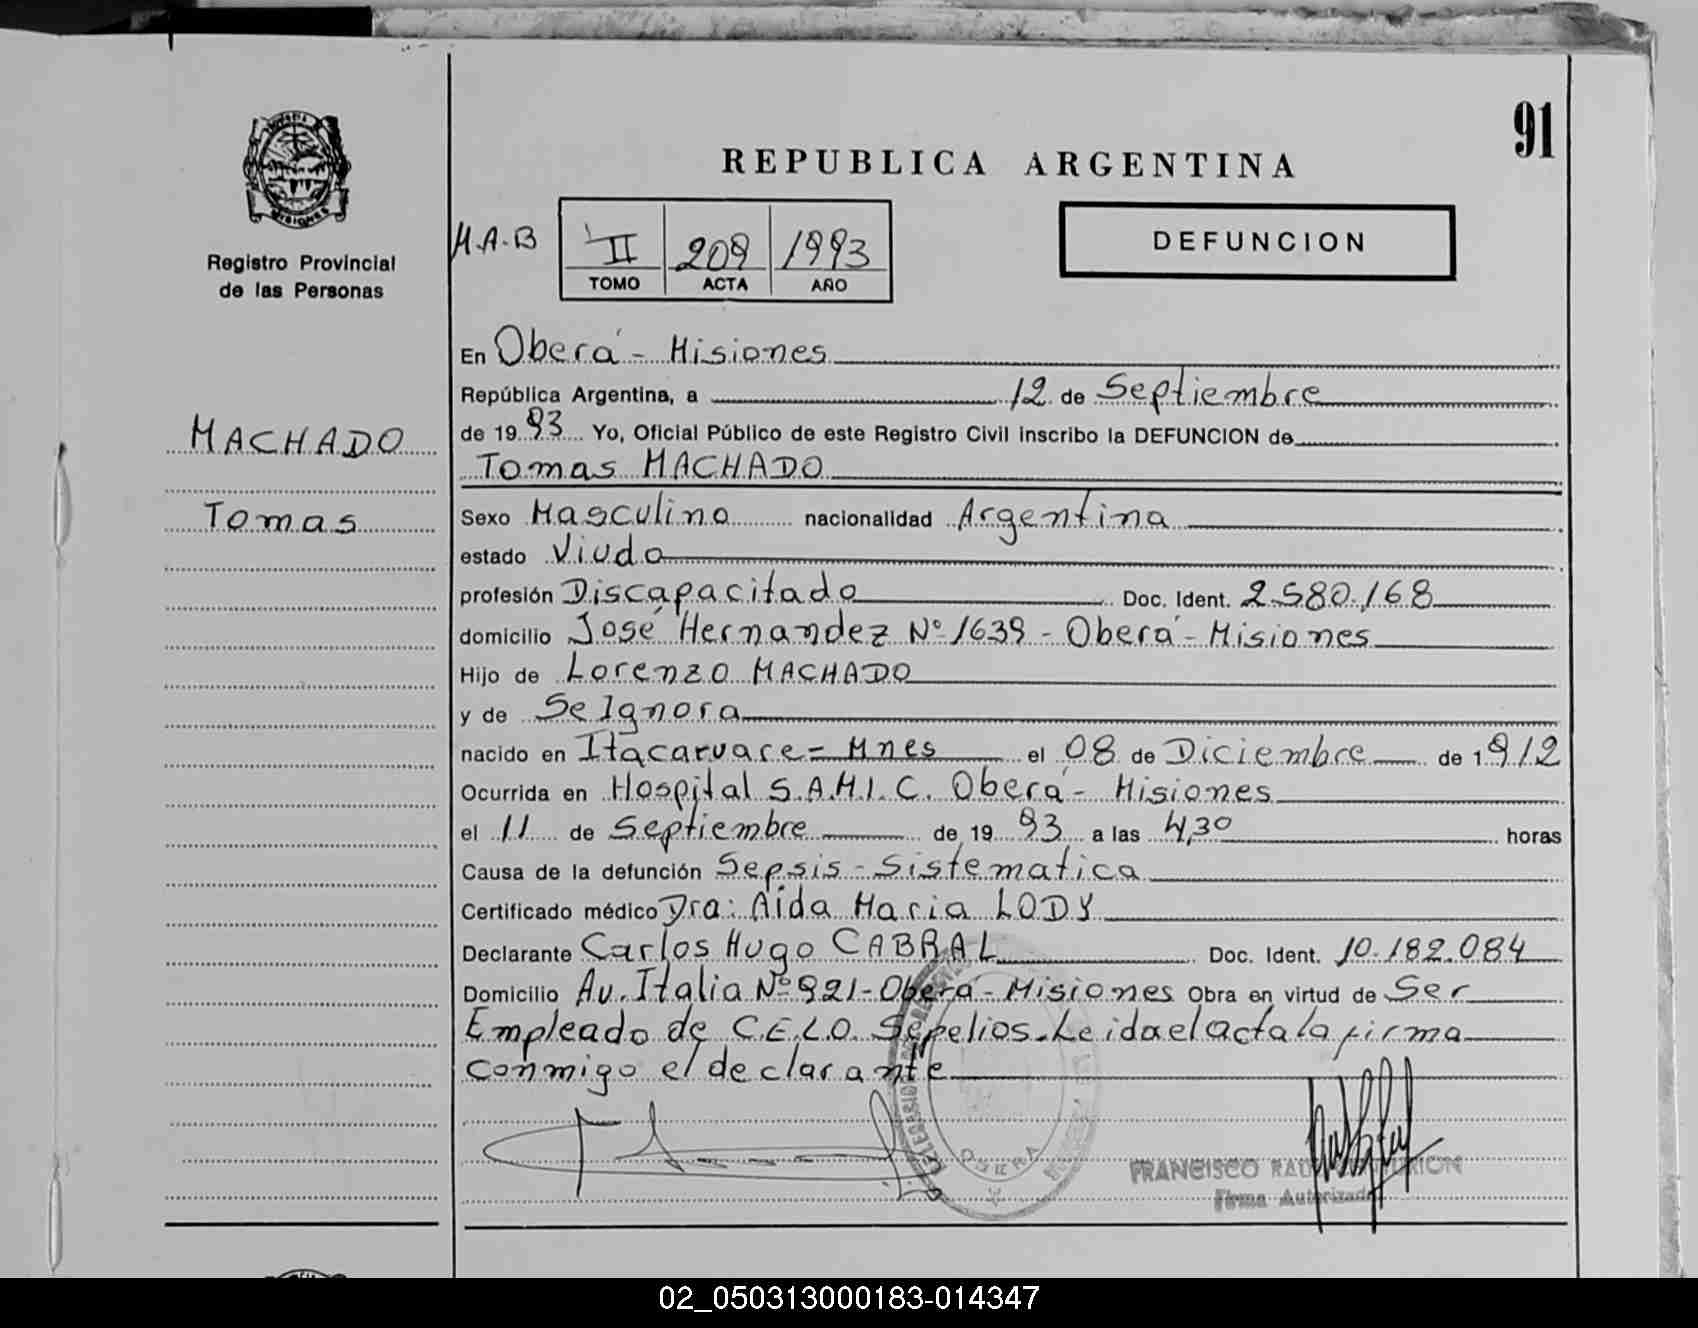 91
REPUBLICA ARGENTINA
M.A.B
II 209 1993
TOMO ACTA AÑO
DEFUNCION
MISIONES
Registro Provincial
de las Personas
MACHADO
Tomas
En Oberá - Misiones
República Argentina, a 12 de Septiembre
de 1993 Yo, Oficial Público de este Registro Civil inscribo la DEFUNCION de
Tomas MACHADO
Sexo Masculino nacionalidad Argentina
estado Viudo
profesión Discapacitado Doc. Ident. 2.580.168
domicilio José Hernandez Nº 1639 - Oberá - Misiones
Hijo de Lorenzo MACHADO
y de Se Ignora
nacido en Itacaruare = Mnes el 08 de Diciembre de 1912
Ocurrida en Hospital S.A.M.I.C. Oberá - Misiones
el 11 de Septiembre de 1993 a las 4,30 horas
Causa de la defunción Sepsis - Sistematica
Certificado médico Dra: Aida Maria LODY
Declarante Carlos Hugo CABRAL Doc. Ident. 10.182.084
Domicilio Av. Italia Nº 921 - Oberá - Misiones Obra en virtud de Ser
Empleado de C.E.L.O. Sepelios. Leida el acta la firma
Conmigo el declarante
OBERA
FRANCISCO
Firma Autorizada
02_050313000183-014347